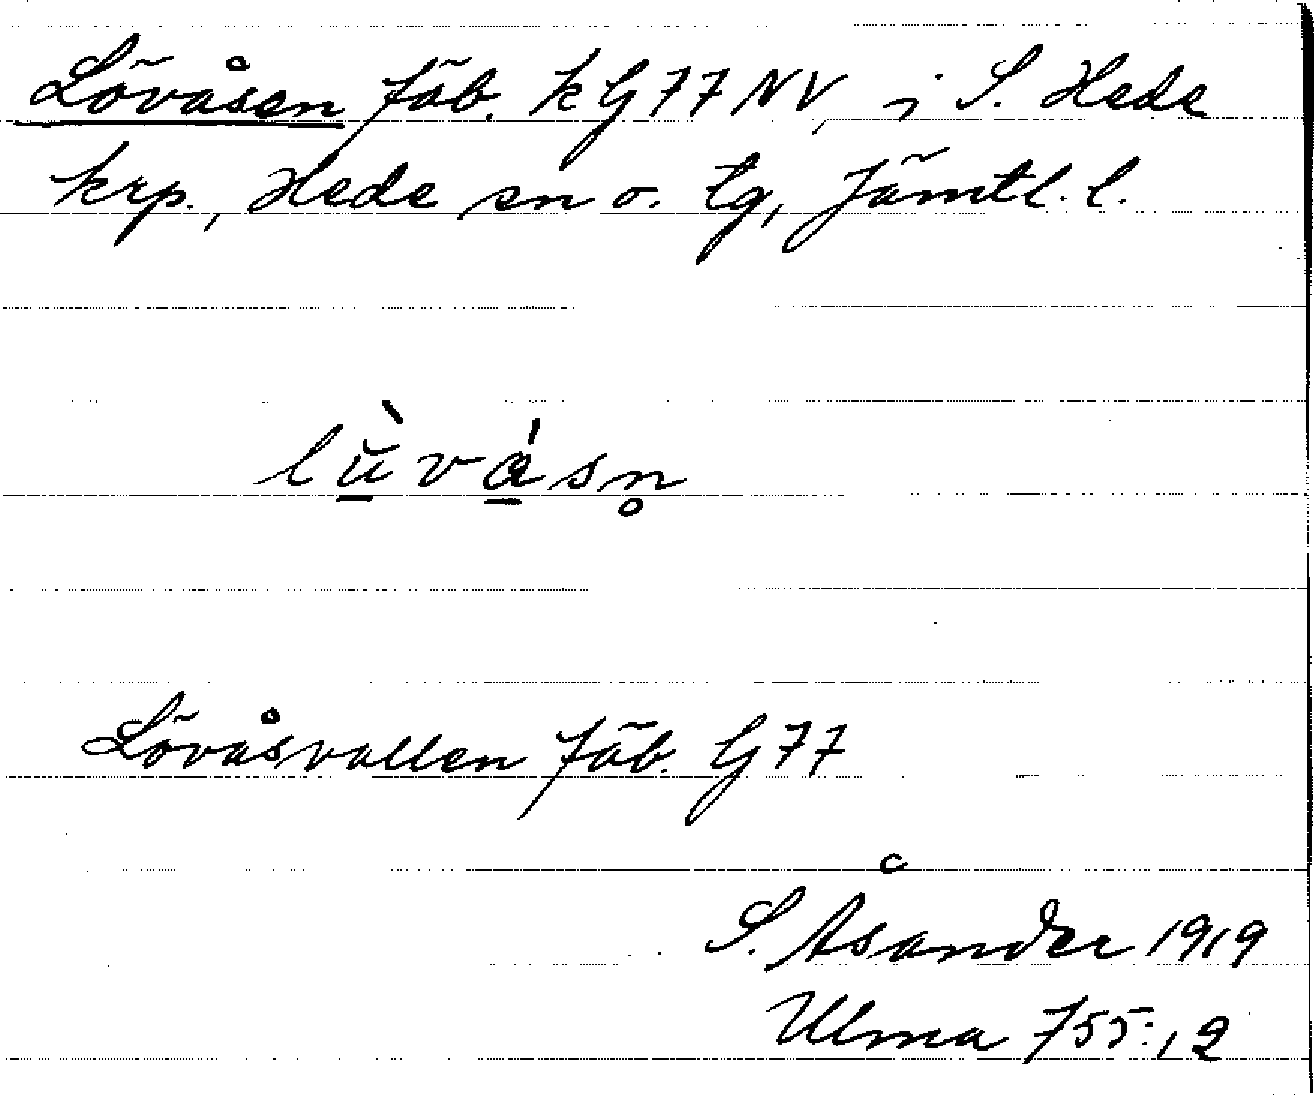 Lövåsen fäb. k G 77 NV, i S. Hede
krp., Hede sn o. tg, Jämtl. l.
lù̲vǻ̲sn̥
Lövåsvallen fäb. G 77
S. Åsander 1919
Ulma 755:, 2